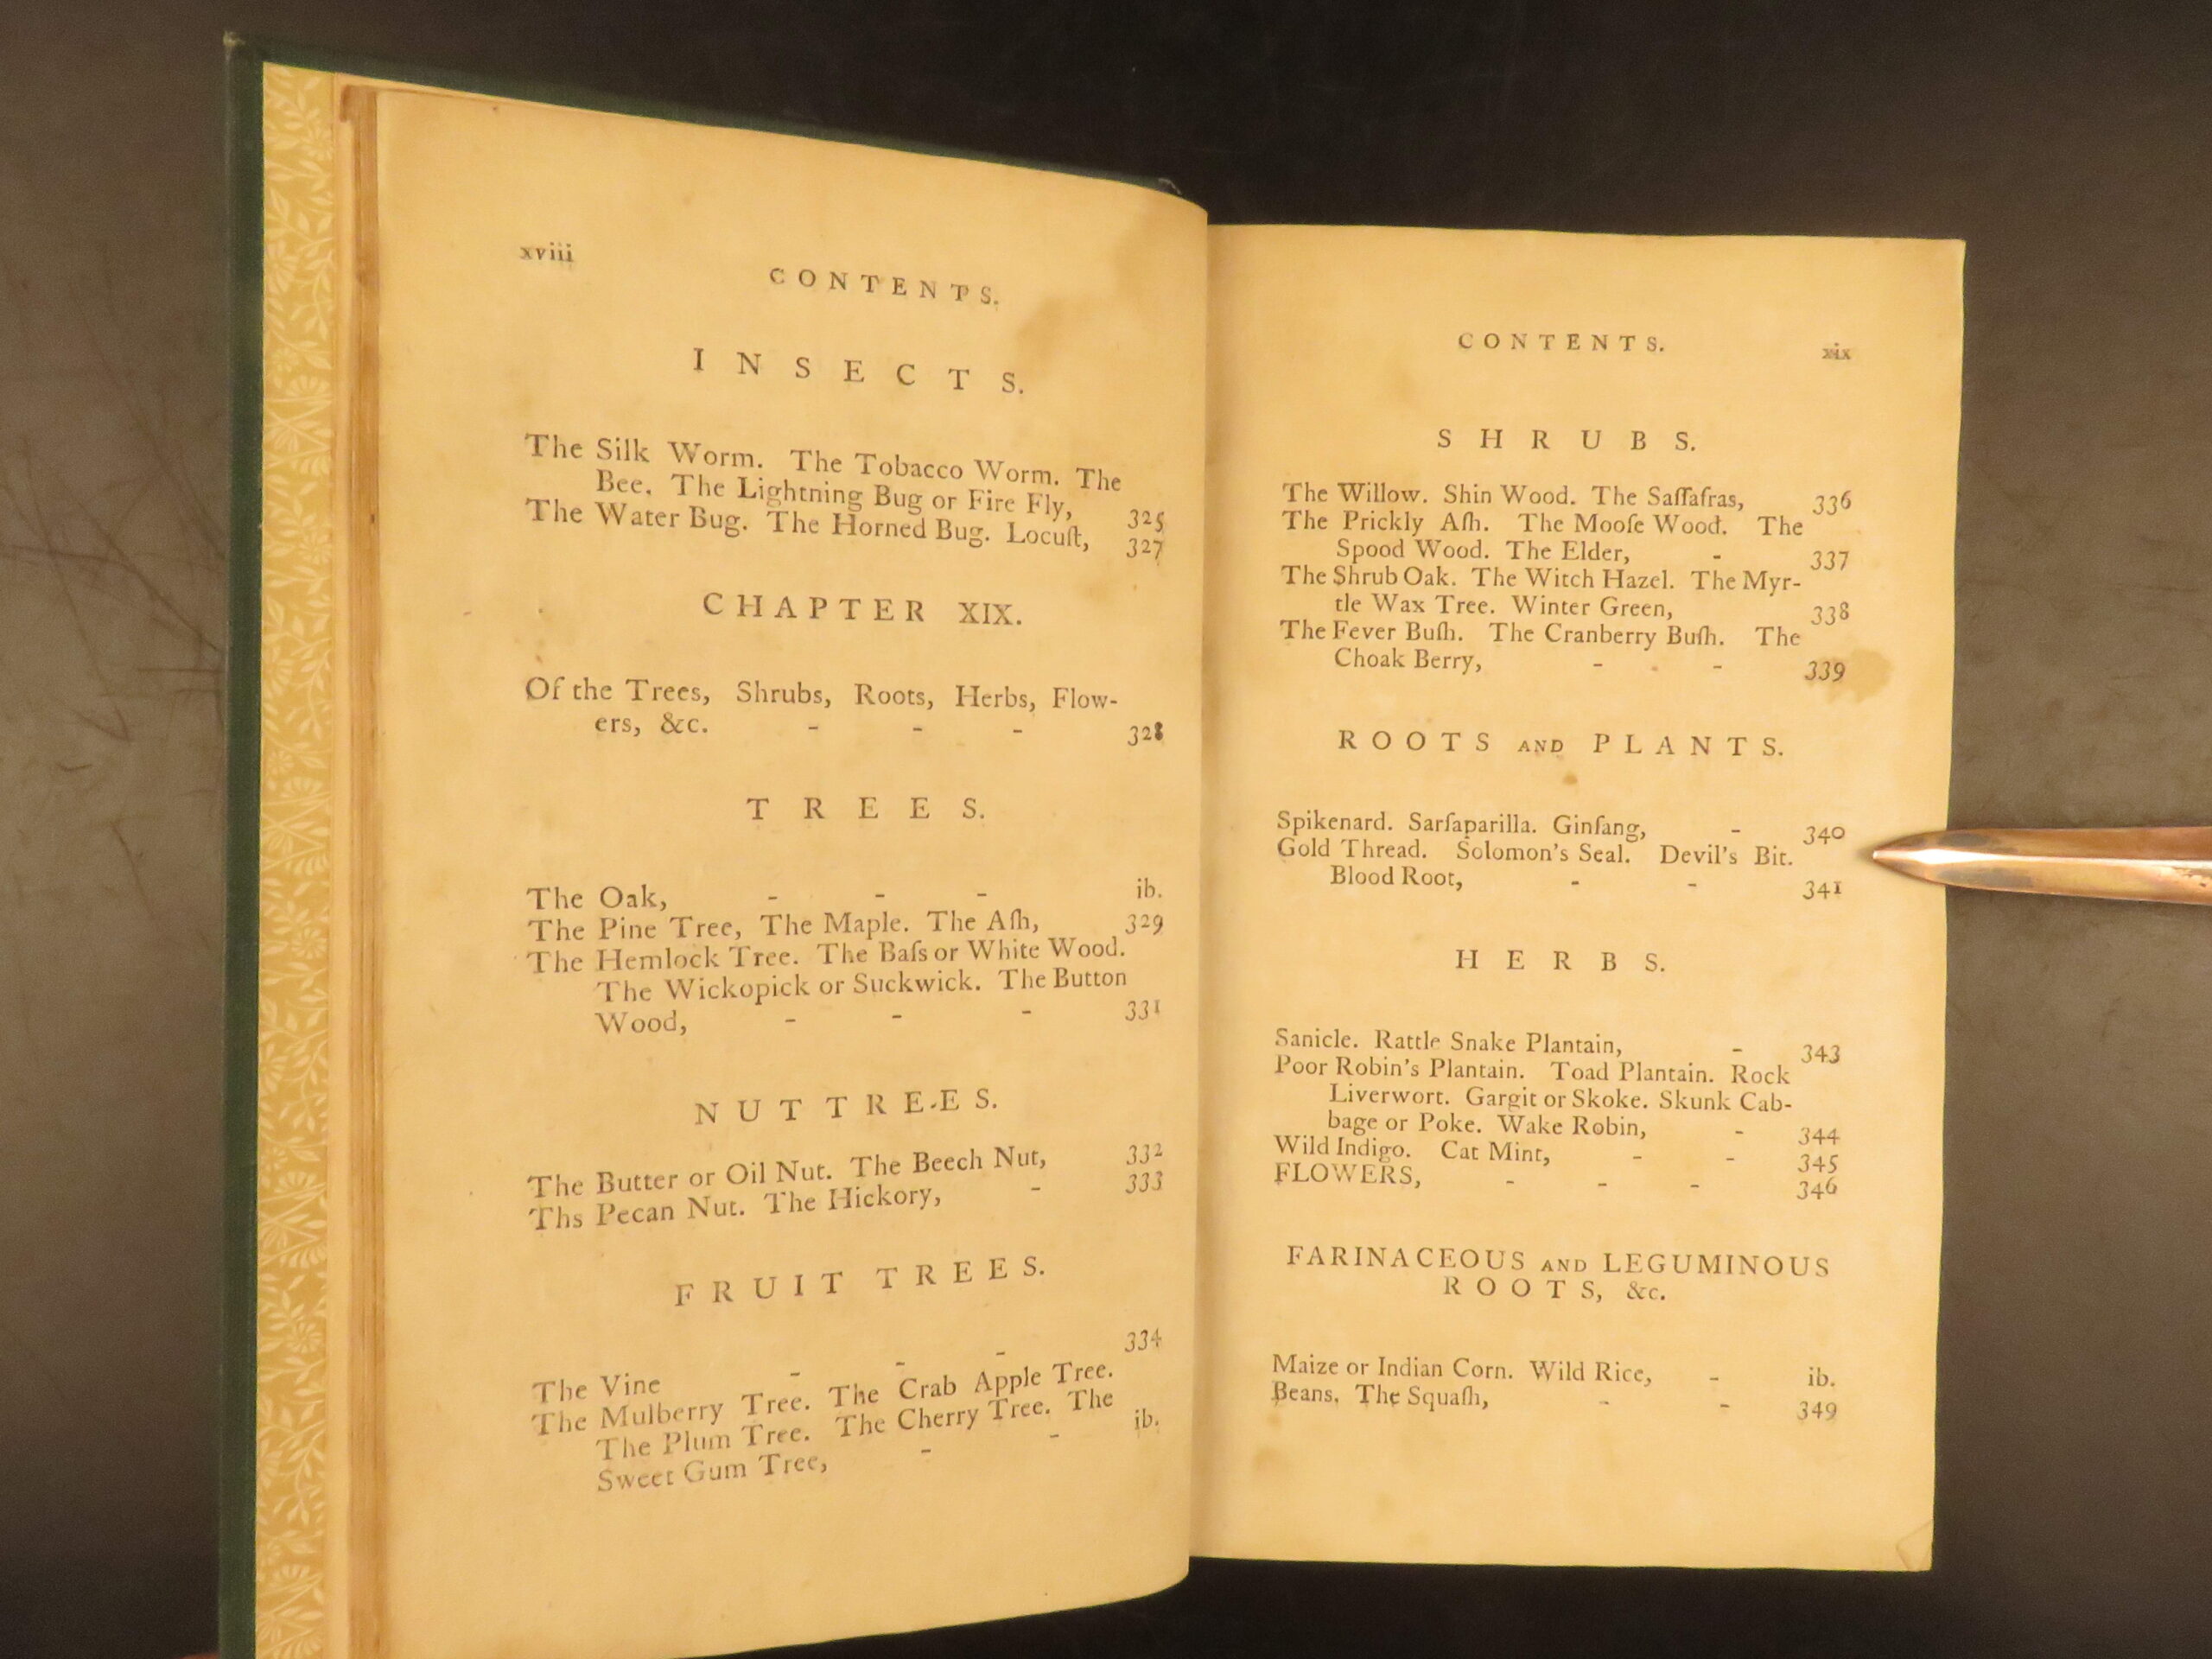 xviii
CONTENTS.
INSECTS.
The Silk Worm. The Tobacco Worm. The
Bee. The Lightning Bug or Fire Fly, 325
The Water Bug. The Horned Bug. Locuſt, 327
CHAPTER XIX.
Of the Trees, Shrubs, Roots, Herbs, Flow-
ers, &c. - - - 328
TREES.
The Oak, - - - ib.
The Pine Tree, The Maple. The Aſh, 329
The Hemlock Tree. The Baſs or White Wood.
The Wickopick or Suckwick. The Button
Wood, - - - 331
NUT TREES.
The Butter or Oil Nut. The Beech Nut, 332
Ths Pecan Nut. The Hickory, - 333
FRUIT TREES.
The Vine - - - 334
The Mulberry Tree. The Crab Apple Tree.
The Plum Tree. The Cherry Tree. The
Sweet Gum Tree, - - ib.
CONTENTS. xix
SHRUBS.
The Willow. Shin Wood. The Saſſafras, 336
The Prickly Aſh. The Mooſe Wood. The
Spood Wood. The Elder, - 337
The Shrub Oak. The Witch Hazel. The Myr-
tle Wax Tree. Winter Green, 338
The Fever Buſh. The Cranberry Buſh. The
Choak Berry, - - 339
ROOTS AND PLANTS.
Spikenard. Sarſaparilla. Ginſang, - 340
Gold Thread. Solomon's Seal. Devil's Bit.
Blood Root, - - 341
HERBS.
Sanicle. Rattle Snake Plantain, - 343
Poor Robin's Plantain. Toad Plantain. Rock
Liverwort. Gargit or Skoke. Skunk Cab-
bage or Poke. Wake Robin, - 344
Wild Indigo. Cat Mint, - - 345
FLOWERS, - - - 346
FARINACEOUS AND LEGUMINOUS
ROOTS, &c.
Maize or Indian Corn. Wild Rice, - ib.
Beans. The Squaſh, - - 349